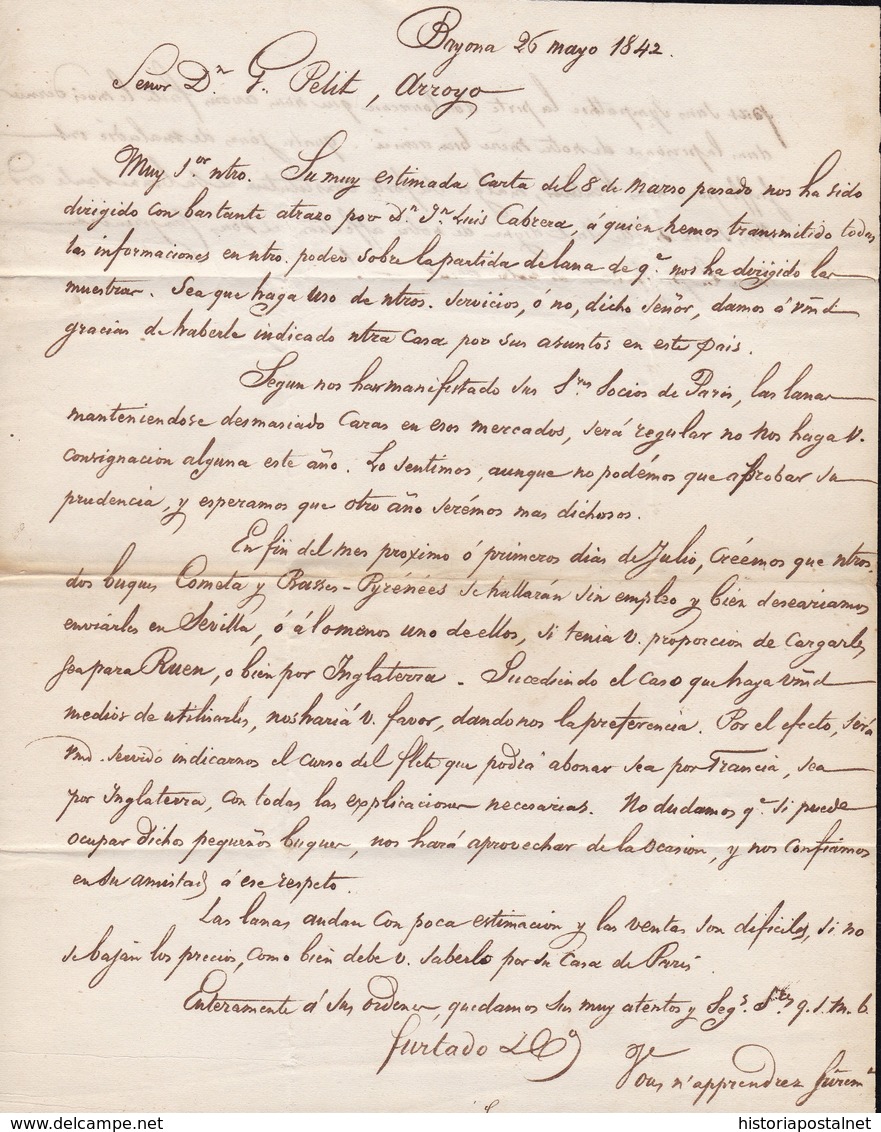 Bayona 26 mayo 1842.
Señor Dn. G. Petit, Arroyo
Muy Sor ntro. Su muy estimada carta del 8 de Marso pasado nos ha sido
dirigido con bastante atrazo por Dn. Jn. Luis Cabrera, á quien hemos transmitido todas
las informaciones en ntro. poder sobre la partida de lana de q.e nos ha dirigido las
muestras. Sea que haga uso de ntros. servicios, ó no, dicho señor, damos á Vmd
gracias de haberle indicado ntra Casa por sus asuntos en este pais.
Segun nos han manifestado sus Sres Socios de Paris, las lanas
manteniendose desmasiado Caras en esos mercados, será regular no nos haga V.
consignacion alguna este año. Lo sentimos, aunque no podémos que aprobar su
prudencia, y esperamos que otro año serémos mas dichosos.
En fin del mes proximo ó primeros dias de Julio, Créémos que ntros.
dos buques Cometa y Basses-Pyrénées se hallarán sin empleo y bién deseariamos
enviárles en Sevilla, ó á lo menos uno de ellos, si tenia V. proporcion de Cargarles
sea para Ruen, o bien por Inglaterra. Sucediendo el Caso que haya Vmd
medios de utilisarles, nos hariá V. favor, dandonos la preferencia. Por el efecto, será
Vmd. servido indicarnos el curso del flete que podiá abonar sea por Francia, sea
por Inglaterra, con todas las explicaciones necesarias. No dudamos q.e si puede
ocupar dichos pequeños buques, nos hará aprovechar de la ocasion, y nos confiamos
en su amistad á ese respeto.
Las lanas andan con poca estimacion y las ventas son dificiles, si no
se baján los precios, como bién debe V. saberlo por su Casa de Paris
Enteramente á sus ordenes, quedamos sus muy atentos y Segs. Sres q.s.m.b.
furtado & Co
Vous n'apprendrez sûremt
historiapostalnet
historiapostalnet